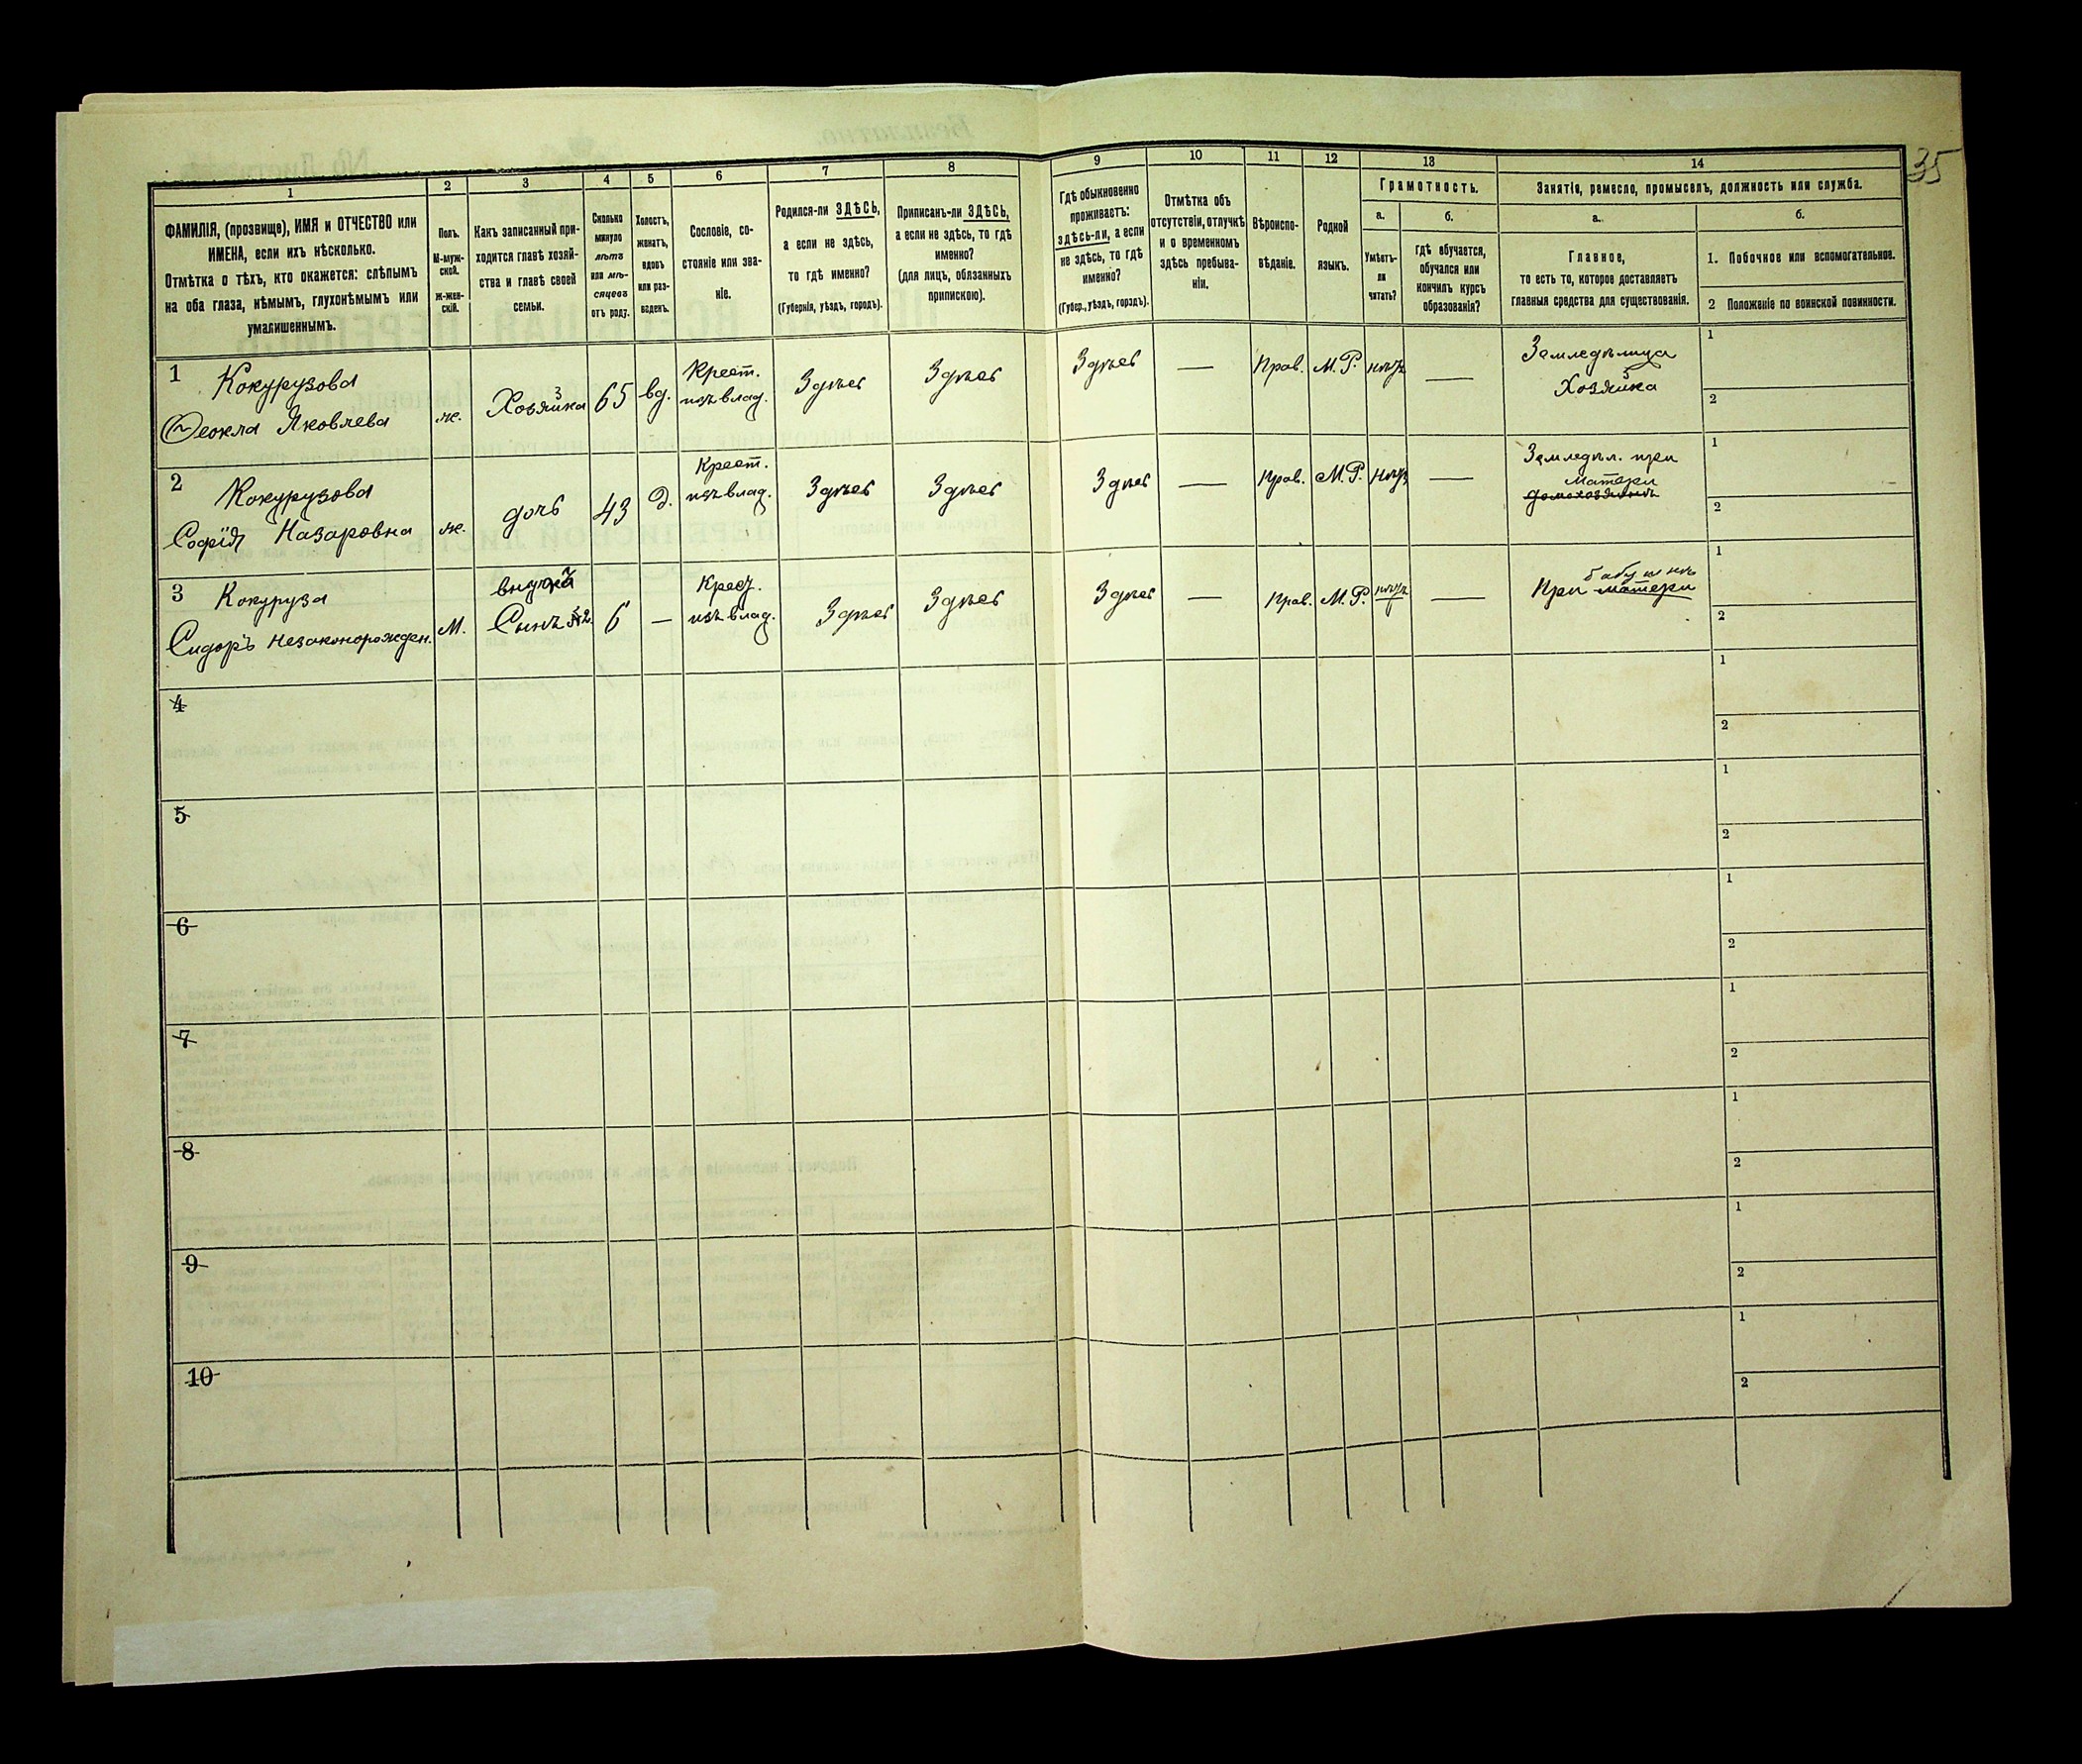 35
1 2 3 4 5 6 7 8 9 10 11 12 13 14
ФАМИЛІЯ, (прозвище), ИМЯ и ОТЧЕСТВО или
ИМЕНА, если ихъ нѣсколько.
Отмѣтка о тѣхъ, кто окажется: слѣпымъ
на оба глаза, нѣмымъ, глухонѣмымъ или
умалишеннымъ.
Полъ.
М-муж-
ской.
ж-жен-
скій.
Какъ записанный при-
ходится главѣ хозяй-
ства и главѣ своей
семьи.
Сколько
минуло
лѣтъ
или мѣ-
сяцевъ
отъ роду.
Холостъ,
женатъ,
вдовъ
или раз-
веденъ.
Сословіе, со-
стояніе или зва-
ніе.
Родился-ли ЗДѢСЬ,
а если не здѣсь,
то гдѣ именно?
(Губернія, уѣздъ, городъ).
Приписанъ-ли ЗДѢСЬ,
а если не здѣсь, то гдѣ
именно?
(для лицъ, обязанныхъ
припискою).
Гдѣ обыкновенно
проживаетъ:
здѣсь-ли, а если
не здѣсь, то гдѣ
именно?
(Губер., уѣздъ, городъ).
Отмѣтка объ
отсутствіи, отлучкѣ
и о временномъ
здѣсь пребыва-
ніи.
Вѣроиспо-
вѣданіе.
Родной
языкъ.
Грамотность.
а. б.
Умѣетъ-
ли
читать?
гдѣ обучается,
обучался или
кончилъ курсъ
образованія?
Занятіе, ремесло, промыселъ, должность или служба.
а. б.
Главное,
то есть то, которое доставляетъ
главныя средства для существованія.
1. Побочное или вспомогательное.
2 Положеніе по воинской повинности.
1 Кокурузова
Ѳеокла Яковлева ж. Хозяйка 65 вд. Крест.
изъ влад. Здѣсь Здѣсь Здѣсь — Прав. М.Р. нѣтъ — Земледѣлица
Хозяйка 1
2
2 Кокурузова
Софія Назаровна ж. дочь 43 д. Крест.
изъ влад. Здѣсь Здѣсь Здѣсь — Прав. М.Р. нѣтъ — Земледѣл. при
матери
1
2
3 Кокуруза
Сидоръ незаконорожден. М. внукъ
Сынъ 6 — Крест.
изъ влад. Здѣсь Здѣсь Здѣсь — Прав. М.Р. нѣтъ — При матери
1
2
4 1
2
5 1
2
6 1
2
7 1
2
8 1
2
9 1
2
10 1
2